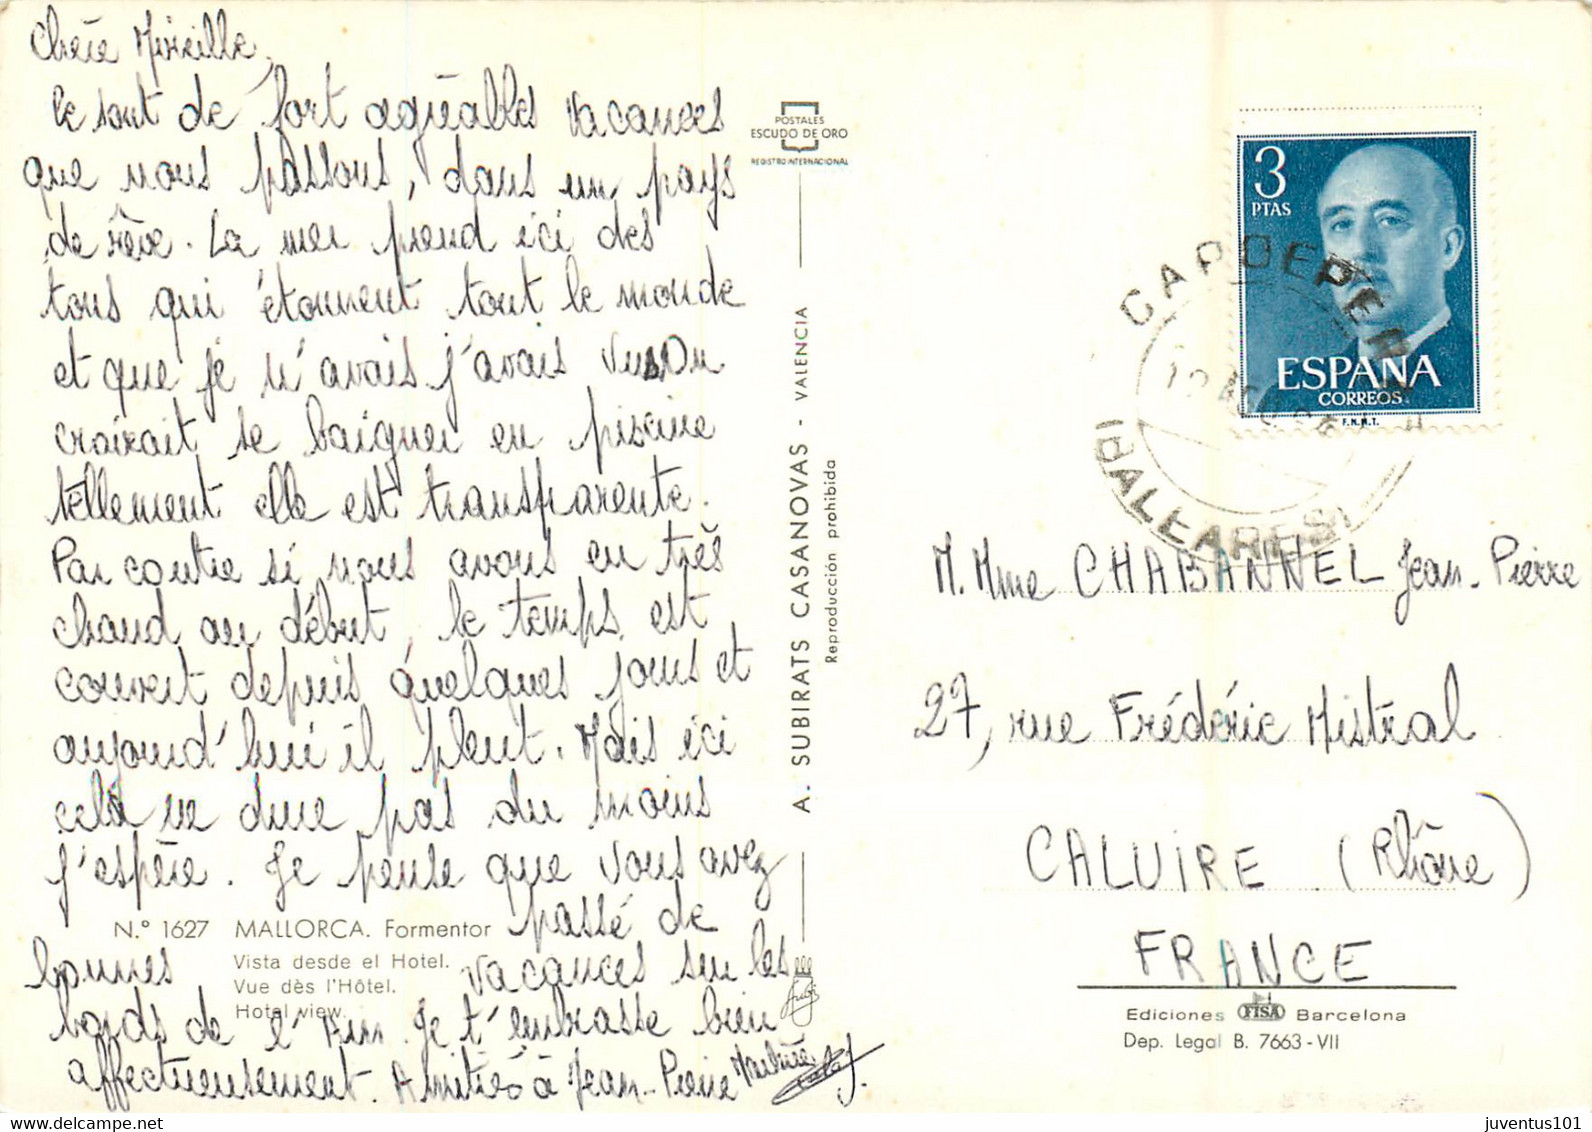 Chère Mireille,
Ce sont de fort agréables vacances
que nous passons, dans un pays
de rêve. La mer prend ici des
tons qui étonnent tout le monde
et que je n'avais j'avais vus. On
croirait se baigner en piscine
tellement elle est transparente.
Par contre si nous avons eu très
chaud au début, le temps est
couvert depuis quelques jours et
aujourd'hui il pleut. Mais ici
cela ne dure pas du moins
j'espère. Je pense que vous avez
passé de
bonnes vacances sur les
bords de l'Ain. Je t'embrasse bien
affectueusement. Amitiés à Jean-Pierre
N.º 1627 MALLORCA. Formentor
Vista desde el Hotel.
Vue dès l'Hôtel.
Hotel view.
POSTALES
ESCUDO DE ORO
REGISTRO INTERNACIONAL
A. SUBIRATS CASANOVAS - VALENCIA
Reproducción prohibida
3
PTAS
ESPAÑA
CORREOS
F.N.M.T.
CAPDEPERA
(BALEARES)
M. Mme CHABANNEL Jean-Pierre
27, rue Frédéric Mistral
CALUIRE (Rhône)
FRANCE
Ediciones FISA Barcelona
Dep. Legal B. 7663-VII
juventus101